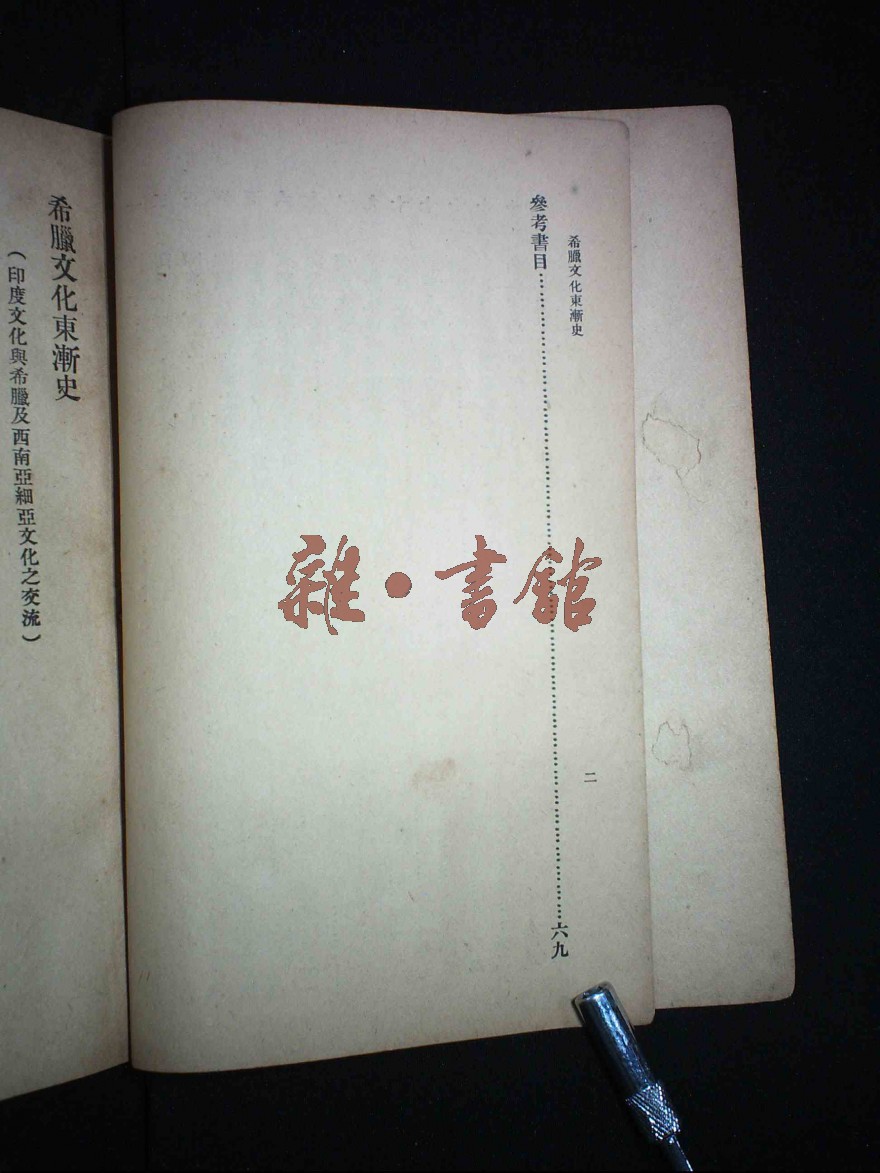 希臘文化東漸史
參考書目……六九
二
希臘文化東漸史
（印度文化與希臘及西南亞細亞文化之交流）
雜•書館